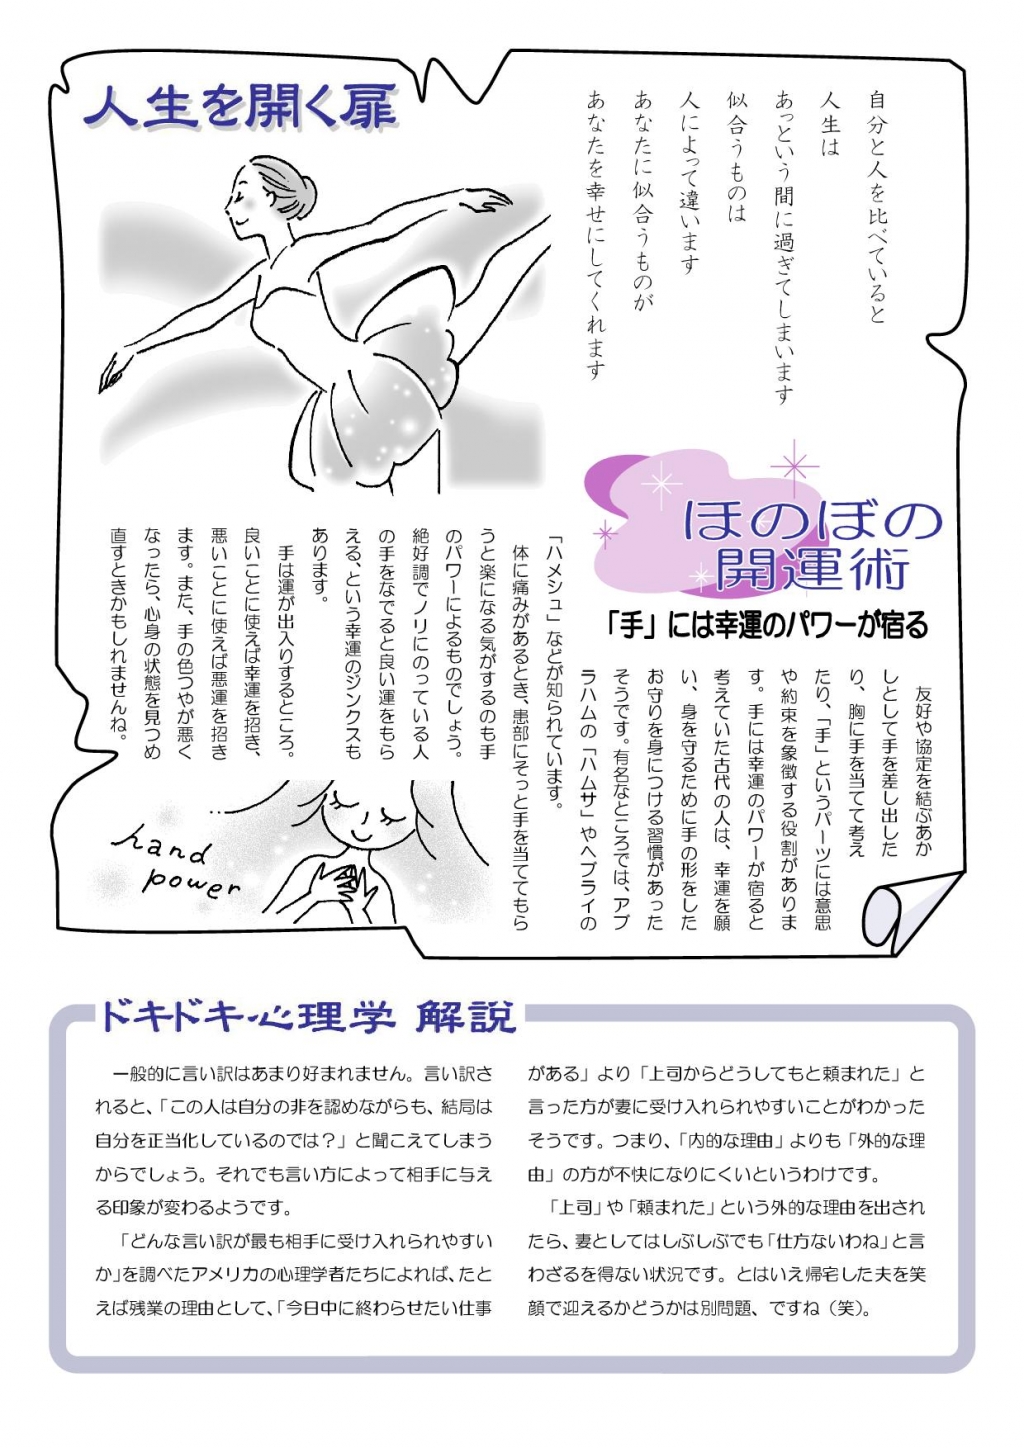 人生を開く扉
自分と人を比べていると
人生は
あっという間に過ぎてしまいます
似合うものは
人によって違います
あなたに似合うものが
あなたを幸せにしてくれます
ほのぼの
開運術
「手」には幸運のパワーが宿る
友好や協定を結ぶあか
しとして手を差し出した
り、胸に手を当てて考え
たり、「手」というパーツには意思
や約束を象徴する役割がありま
す。手には幸運のパワーが宿ると
考えていた古代の人は、幸運を願
い、身を守るために手の形をした
お守りを身につける習慣があった
そうです。有名なところでは、アブ
ラハムの「ハムサ」やヘブライの
「ハメシュ」などが知られています。
体に痛みがあるとき、患部にそっと手を当ててもら
うと楽になる気がするのも手
のパワーによるものでしょう。
絶好調でノリにのっている人
の手をなでると良い運をもら
える、という幸運のジンクスも
あります。
手は運が出入りするところ。
良いことに使えば幸運を招き、
悪いことに使えば悪運を招き
ます。また、手の色つやが悪く
なったら、心身の状態を見つめ
直すときかもしれませんね。
hand
power
ドキドキ心理学 解説
一般的に言い訳はあまり好まれません。言い訳さ
れると、「この人は自分の非を認めながらも、結局は
自分を正当化しているのでは？」と聞こえてしまう
からでしょう。それでも言い方によって相手に与え
る印象が変わるようです。
「どんな言い訳が最も相手に受け入れられやすい
か」を調べたアメリカの心理学者たちによれば、たと
えば残業の理由として、「今日中に終わらせたい仕事
がある」より「上司からどうしてもと頼まれた」と
言った方が妻に受け入れられやすいことがわかった
そうです。つまり、「内的な理由」よりも「外的な理
由」の方が不快になりにくいというわけです。
「上司」や「頼まれた」という外的な理由を出され
たら、妻としてはしぶしぶでも「仕方ないわね」と言
わざるを得ない状況です。とはいえ帰宅した夫を笑
顔で迎えるかどうかは別問題、ですね（笑）。